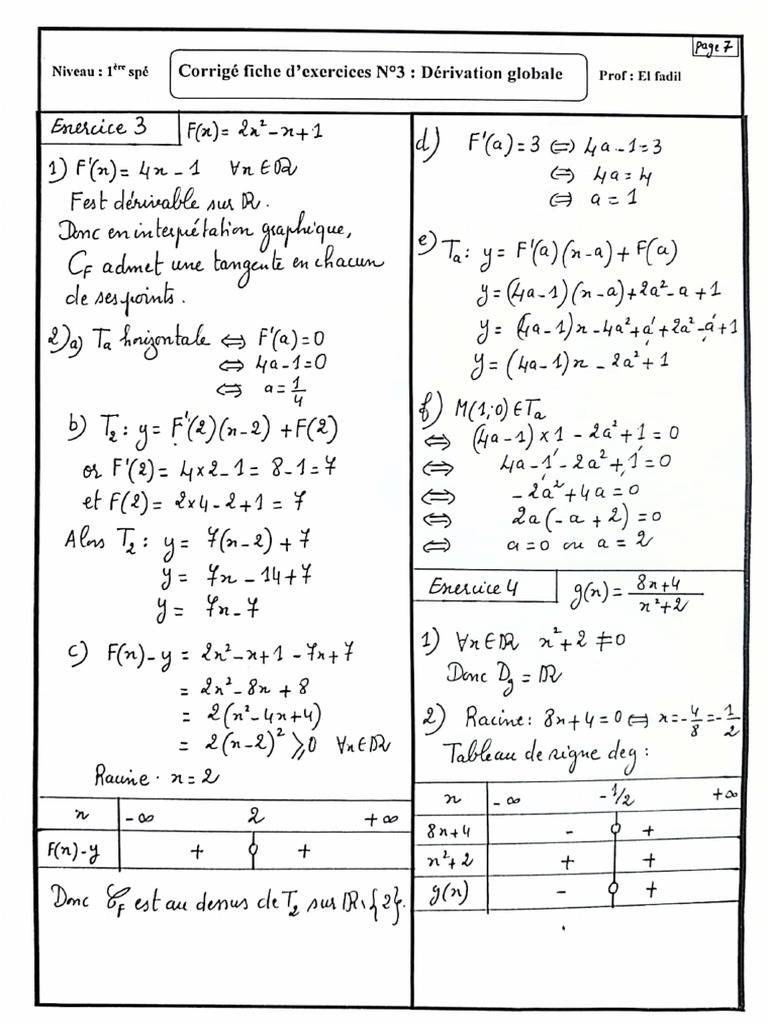 page 7
Niveau : 1ère spé
Corrigé fiche d'exercices N°3 : Dérivation globale
Prof : El fadil
Exercice 3
F(x) = 2x² - x + 1
1) F'(x) = 4x - 1 ∀x ∈ ℝ
F est dérivable sur ℝ.
Donc en interprétation graphique,
C_F admet une tangente en chacun
de ses points.
2) a) T_a horizontale ⇔ F'(a) = 0
⇔ 4a - 1 = 0
⇔ a = 1/4
b) T₂ : y = F'(2)(x-2) + F(2)
or F'(2) = 4×2 - 1 = 8 - 1 = 7
et F(2) = 2×4 - 2 + 1 = 7
Alors T₂ : y = 7(x-2) + 7
y = 7x - 14 + 7
y = 7x - 7
c) F(x) - y = 2x² - x + 1 - 7x + 7
= 2x² - 8x + 8
= 2(x² - 4x + 4)
= 2(x-2)² ⩾ 0 ∀x ∈ ℝ
Racine · x = 2
x -∞ 2 +∞
F(x)-y + 0 +
Donc 𝒞_F est au dessus de T₂ sur ℝ\{2}.
d) F'(a) = 3 ⇔ 4a - 1 = 3
⇔ 4a = 4
⇔ a = 1
e) T_a : y = F'(a)(x-a) + F(a)
y = (4a-1)(x-a) + 2a² - a + 1
y = (4a-1)x - 4a² + a + 2a² - a + 1
y = (4a-1)x - 2a² + 1
f) M(1;0) ∈ T_a
⇔ (4a-1)×1 - 2a² + 1 = 0
⇔ 4a - 1 - 2a² + 1 = 0
⇔ -2a² + 4a = 0
⇔ 2a(-a + 2) = 0
⇔ a = 0 ou a = 2
Exercice 4
g(x) = (8x+4)/(x²+2)
1) ∀x ∈ ℝ x² + 2 ≠ 0
Donc D_g = ℝ
2) Racine : 8x + 4 = 0 ⇔ x = -4/8 = -1/2
Tableau de signe de g :
x -∞ -1/2 +∞
8x+4 - 0 +
x²+2 + +
g(x) - 0 +